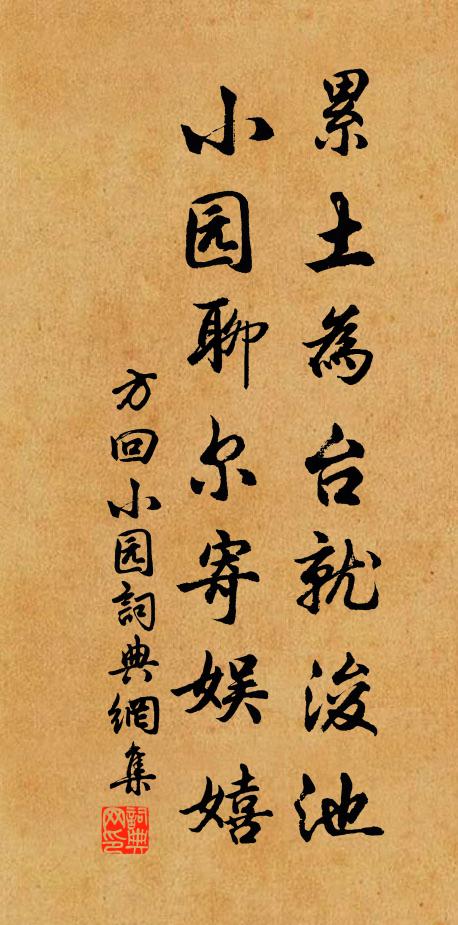 累土為台就浚池
小园聊尔寄娱嬉
方回小园詞典網集
詞典网印